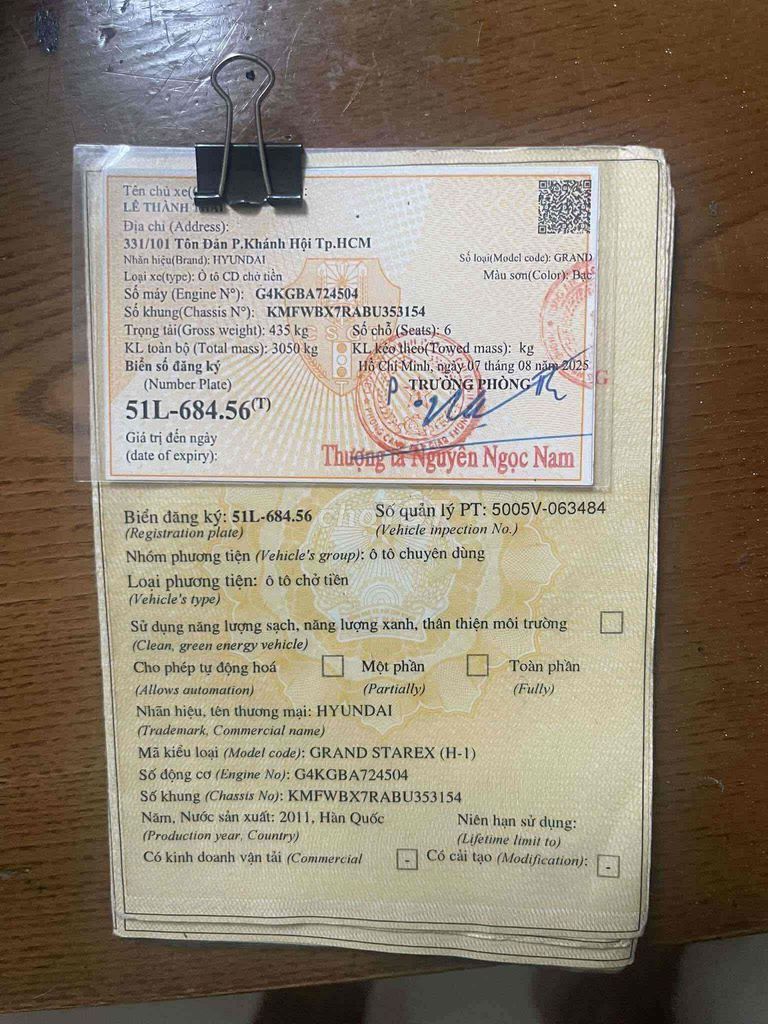 Tên chủ xe(
LÊ THÀNH
Địa chỉ (Address):
331/101 Tôn Đản P.Khánh Hội Tp.HCM
Nhãn hiệu(Brand): HYUNDAI Số loại(Model code): GRAND
Loại xe(type): Ô tô CD chở tiền Màu sơn(Color): Bạc
Số máy (Engine N°): G4KGBA724504
Số khung(Chassis N°): KMFWBX7RABU353154
Trọng tải(Gross weight): 435 kg Số chỗ (Seats): 6
KL toàn bộ (Total mass): 3050 kg KL kéo theo(Towed mass): kg
Biển số đăng ký Hồ Chí Minh, ngày 07 tháng 08 năm 2025
(Number Plate) TRƯỞNG PHÒNG
51L-684.56(T)
Giá trị đến ngày
(date of expiry): Thượng tá Nguyễn Ngọc Nam
Biển đăng ký: 51L-684.56 Số quản lý PT: 5005V-063484
(Registration plate) (Vehicle inspection No.)
Nhóm phương tiện (Vehicle's group): ô tô chuyên dùng
Loại phương tiện: ô tô chở tiền
(Vehicle's type)
Sử dụng năng lượng sạch, năng lượng xanh, thân thiện môi trường
(Clean, green energy vehicle)
Cho phép tự động hoá Một phần Toàn phần
(Allows automation) (Partially) (Fully)
Nhãn hiệu, tên thương mại: HYUNDAI
(Trademark, Commercial name)
Mã kiểu loại (Model code): GRAND STAREX (H-1)
Số động cơ (Engine No): G4KGBA724504
Số khung (Chassis No): KMFWBX7RABU353154
Năm, Nước sản xuất: 2011, Hàn Quốc Niên hạn sử dụng:
(Production year, Country) (Lifetime limit to)
Có kinh doanh vận tải (Commercial - Có cải tạo (Modification): -